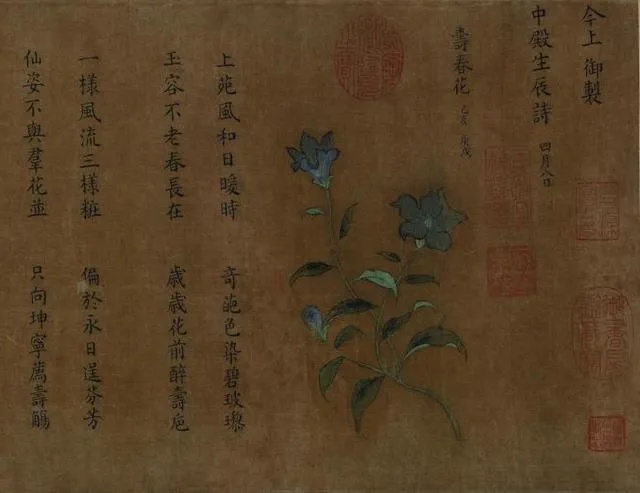 今上御製
中殿生辰詩 四月八日
壽春花 己亥 庚戌
上苑風和日暖時 奇葩色染碧玻瓈
玉容不老春長在 歲歲花前醉壽巵
一樣風流三樣粧 偏於永日逞芬芳
仙姿不與羣花並 只向坤寧薦壽觴